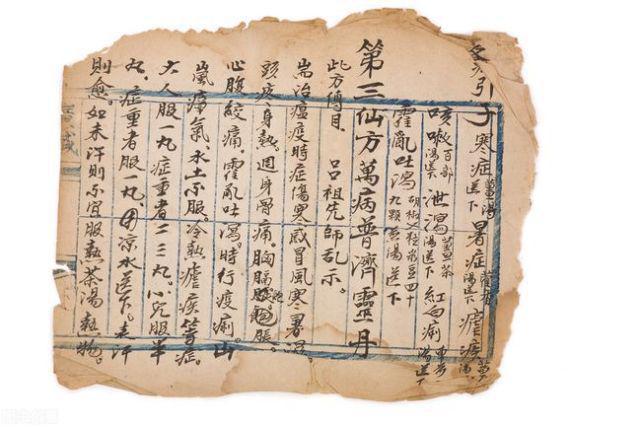 引子寒症薑湯送下暑症藿香湯送下瘧疾
咳嗽百部湯送下泄瀉薑茶湯送下紅白痢車前湯送下
霍亂吐瀉胡椒菉豆四十九顆煎湯送下
第三仙方萬病普濟靈丹
此方傳自 呂祖先師乩示。
耑治瘟疫時症傷寒感冒風寒暑濕
頭疼身熱。週身骨痛。胸膈飽脹。
心腹絞痛。霍亂吐瀉。時行疫痢。山
嵐瘴氣。水土不服。冷熱瘧疾等症。
大人服一丸症重者二三丸。小兒服半
丸。症重者服一丸。用凉水送下。表汗
則愈。如未汗則不宜服熱茶湯熱物。